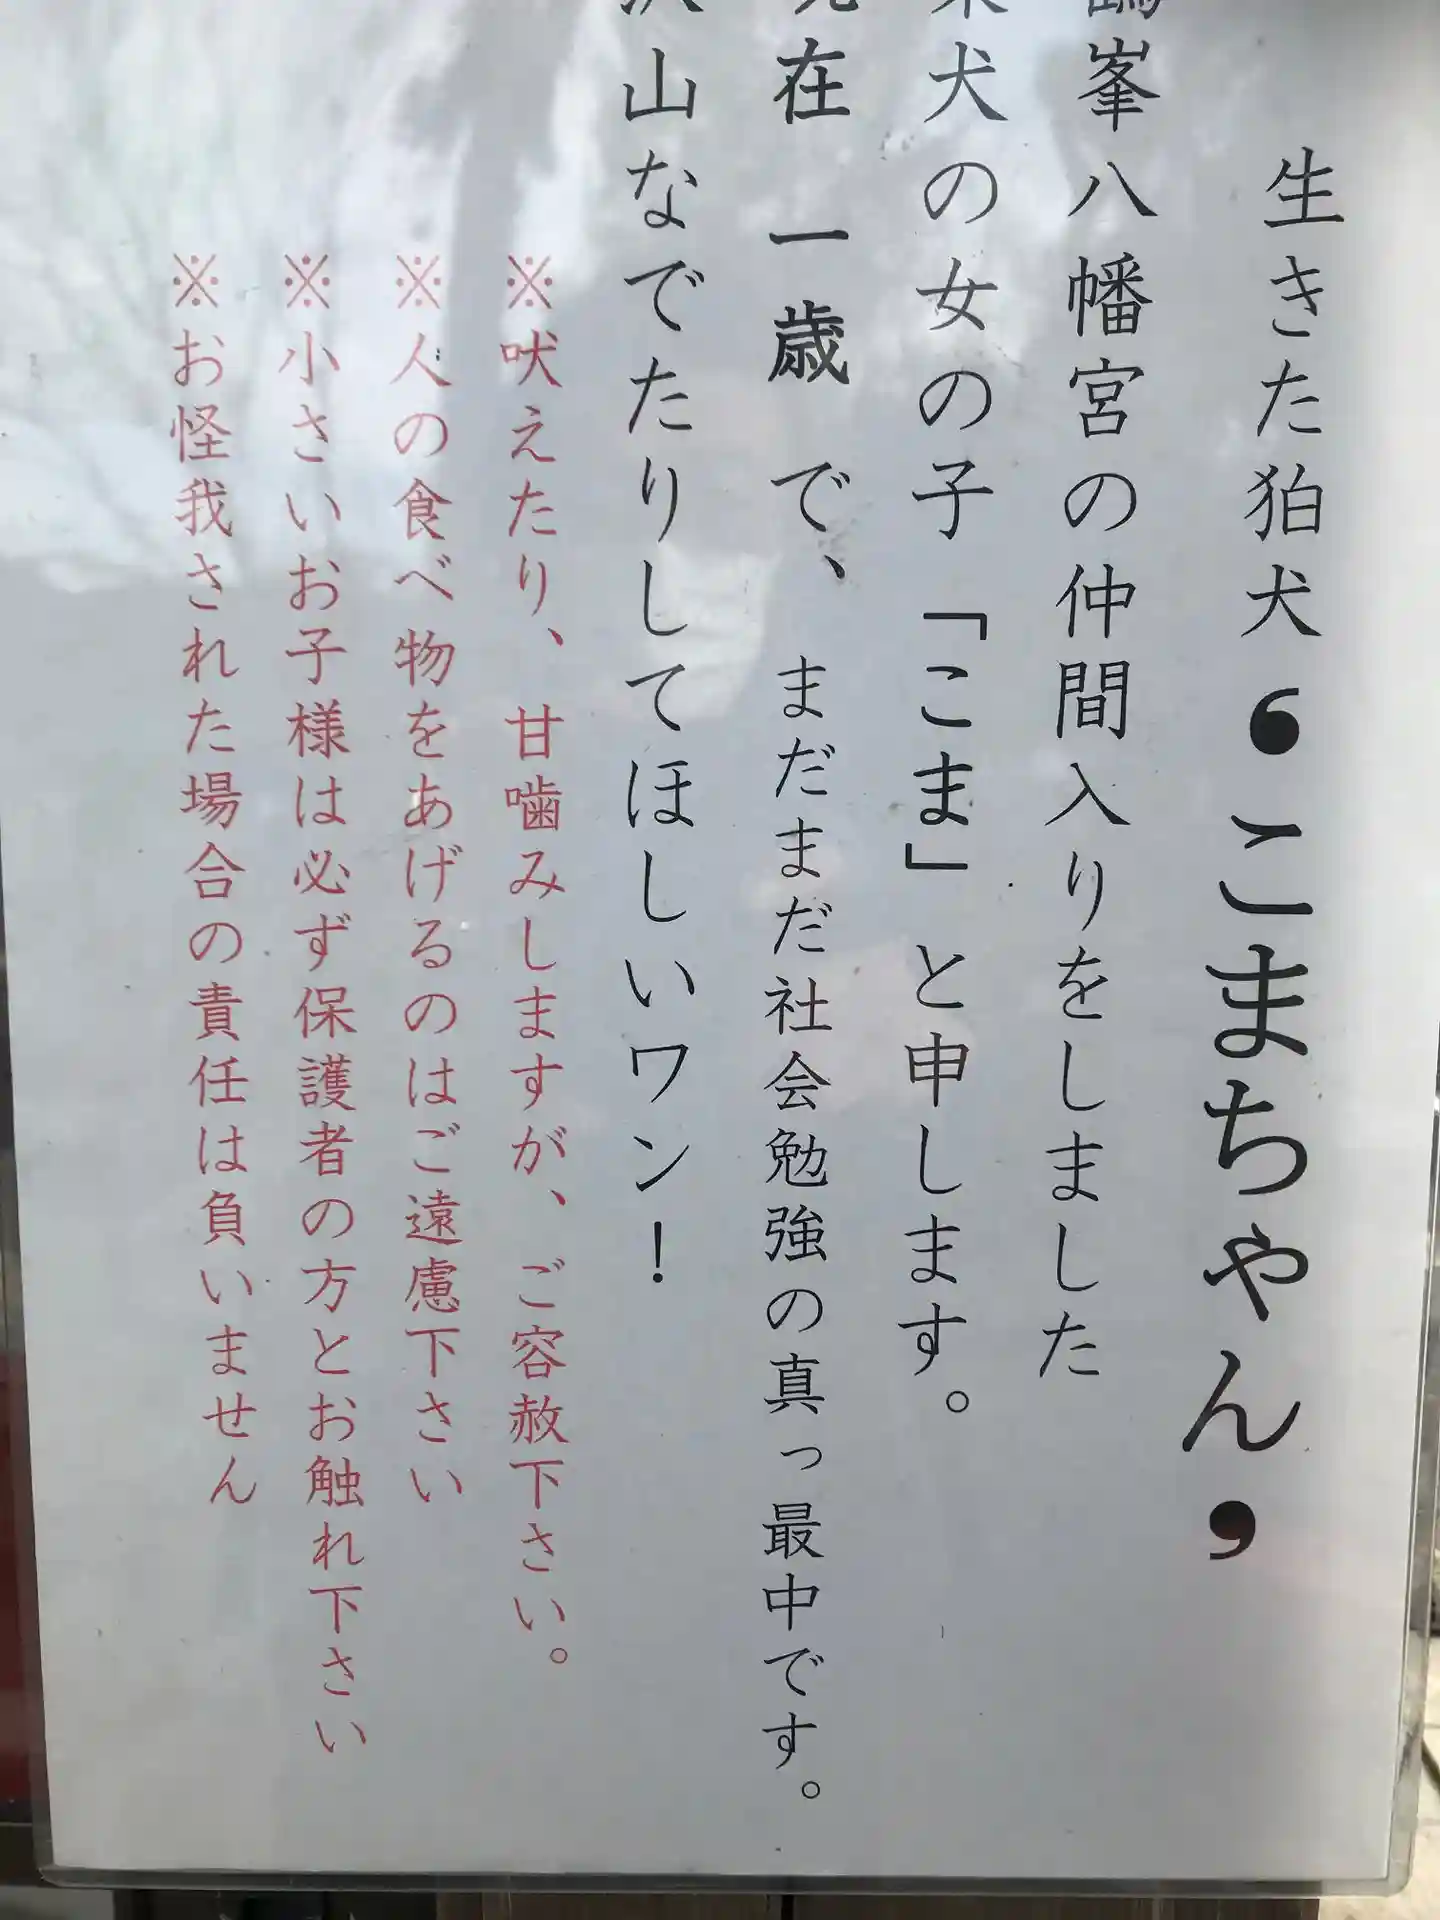 生きた狛犬❛こまちゃん❜
峯八幡宮の仲間入りをしました
犬の女の子「こま」と申します。
在 一歳 で、まだまだ社会勉強の真っ最中です。
山なでたりしてほしいワン！
※吠えたり、甘噛みしますが、ご容赦下さい。
※人の食べ物をあげるのはご遠慮下さい
※小さいお子様は必ず保護者の方とお触れ下さい
※お怪我された場合の責任は負いません